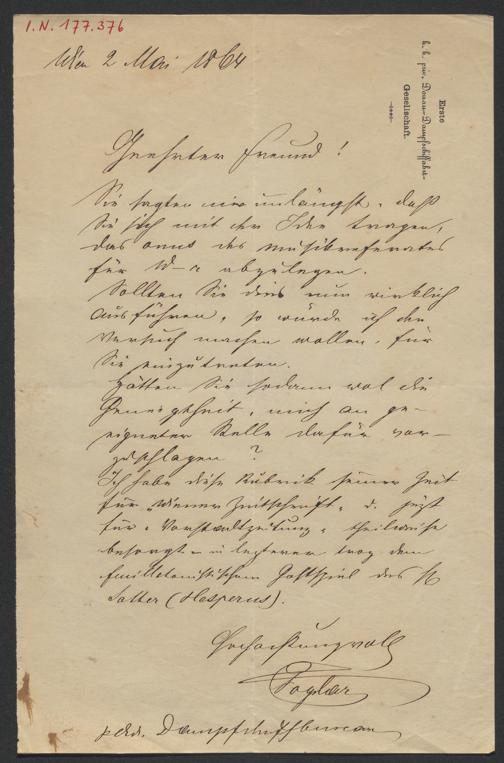 I.N. 177.376
Wien 2 Mai 1864
Erste
k. k. priv. Donau-Dampfschiffahrt-
Gesellschaft.
Geehrter Freund!
Sie sagten mir unlängst, daß
Sie sich mit der Idee tragen,
das onus des Musikreferates
für abzulegen.
Sollten Sie dies nun wirklich
ausführen, so würde ich den
Versuch machen wollen, für
Sie einzutreten.
Hätten Sie sodann wol die
Geneigtheit, mich an ge-
eigneter Stelle dafür vor-
zuschlagen?
Ich habe diese Rubrik seiner Zeit
für „Wiener Zeitschrift" u. jetzt
für „Vorstadtzeitung" theilweise
besorgt – in letzterer trotz dem
feuilletonistischen Gastspiel des
Salter (Hesperus).
Hochachtungsvoll
Foglar
Dampfschiffbureau